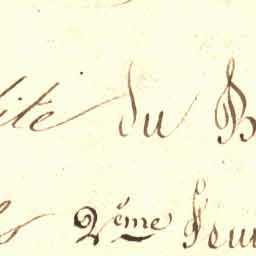 ité du B
s 2ème Feui